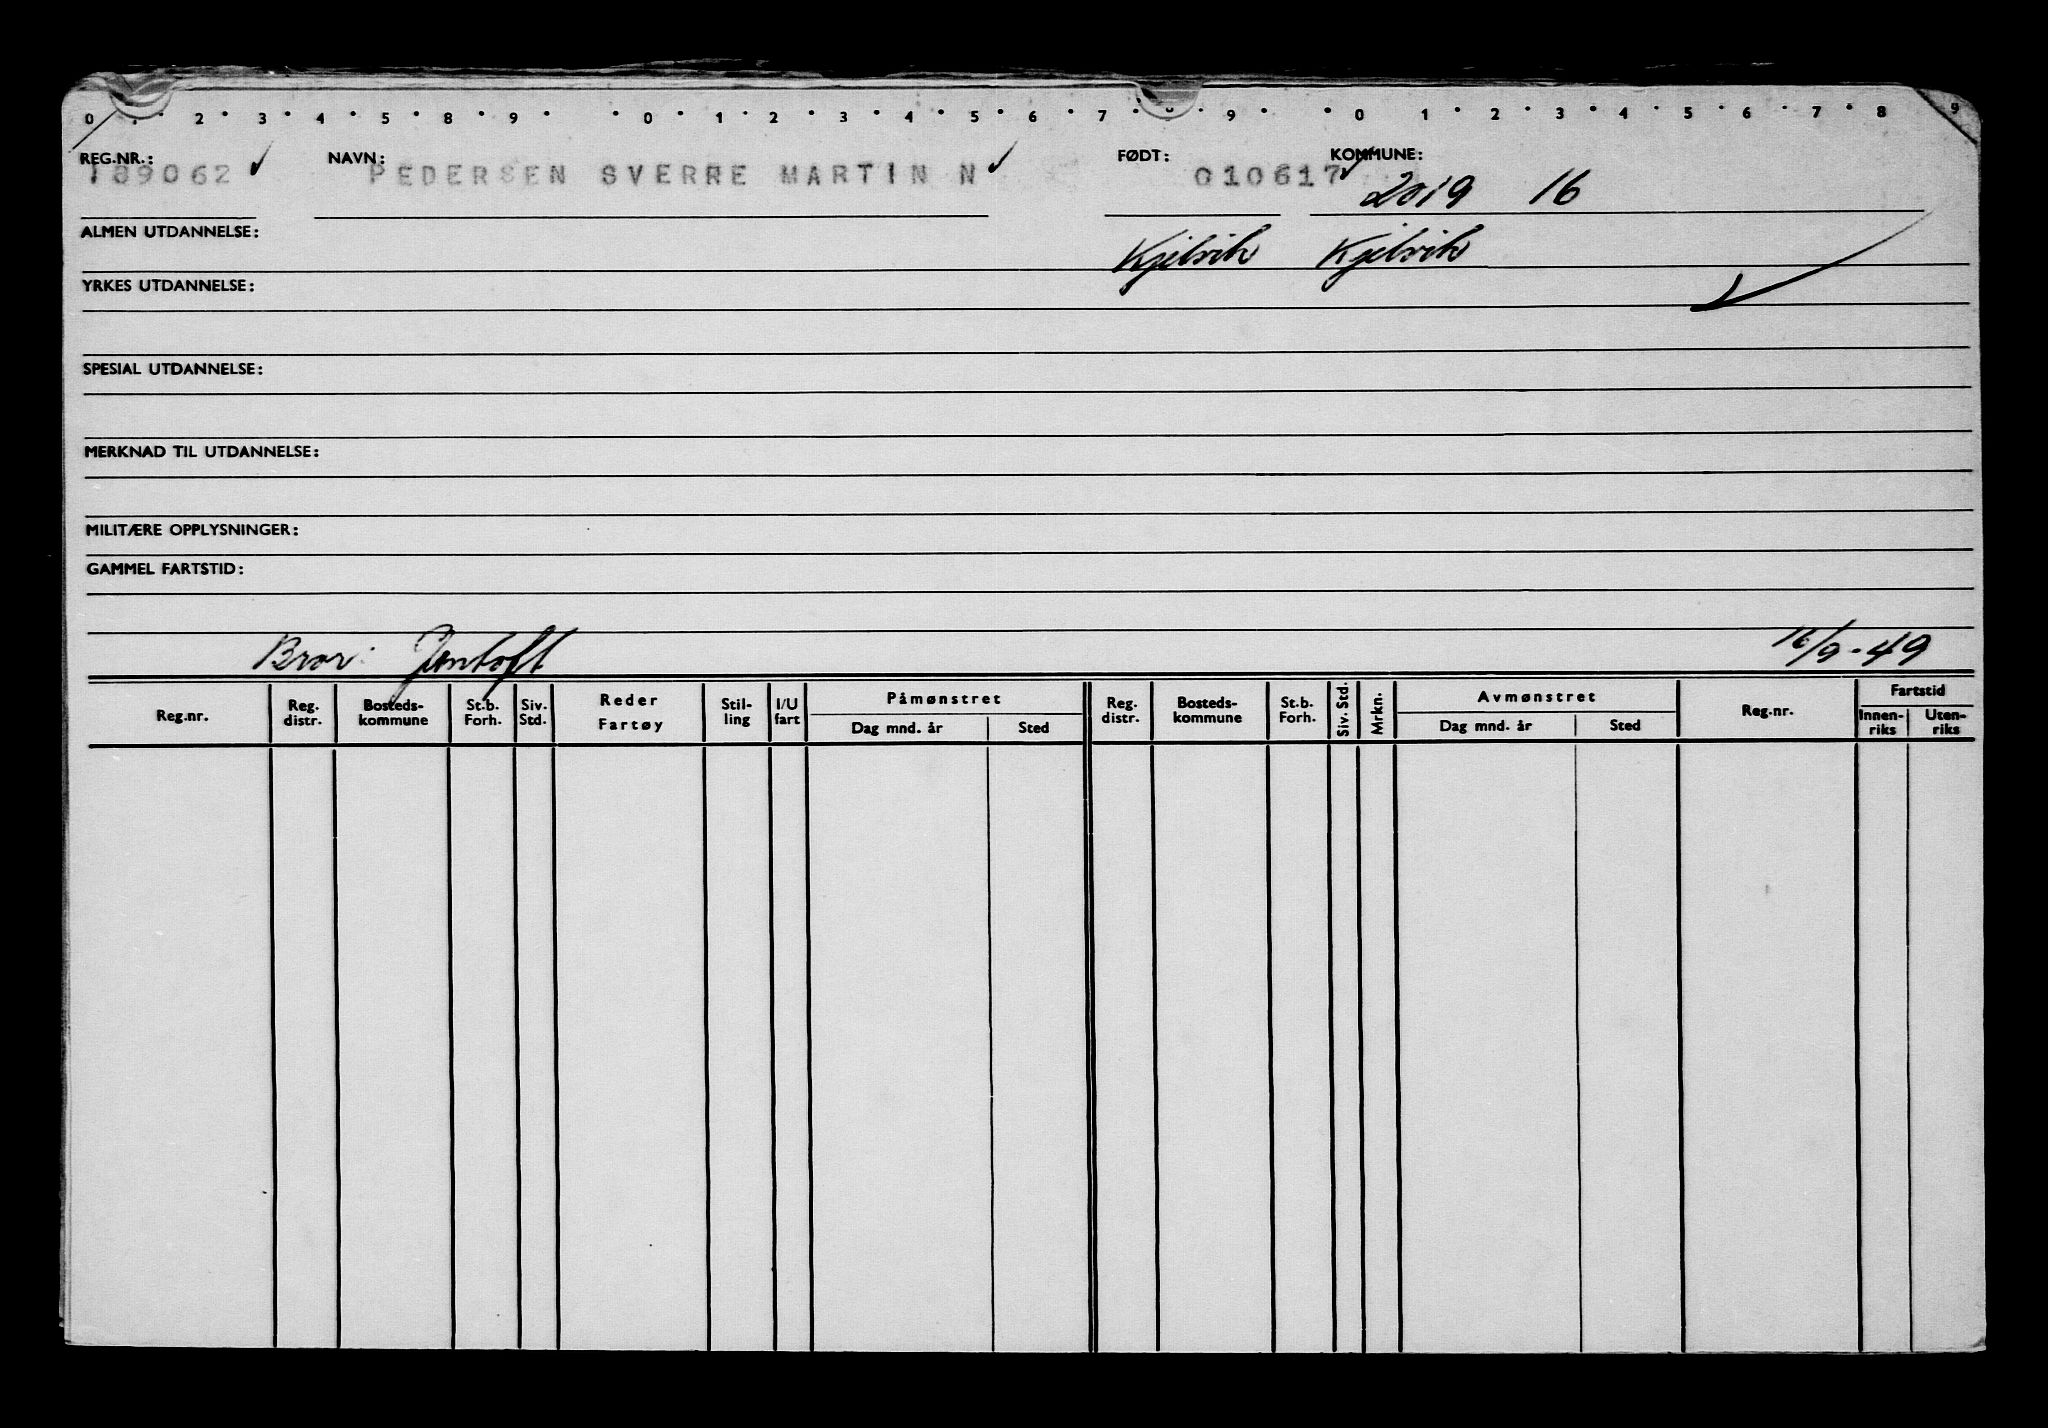 0 . 2 . 3 . 4 . 5 . 8 . 9 . . 0 . 1 . 2 . 3 . 4 . 5 . 6 . 7 . 8 . 9 . . 0 . 1 . 2 . 3 . 4 . 5 . 6 . 7 . 8 9
REG.NR.: NAVN: FØDT: KOMMUNE:
189062 PEDERSEN SVERRE MARTIN N 010617 2019 16
ALMEN UTDANNELSE: Kjelvik Kjelvik
YRKES UTDANNELSE:
SPESIAL UTDANNELSE:
MERKNAD TIL UTDANNELSE:
MILITÆRE OPPLYSNINGER:
GAMMEL FARTSTID:
Bror: Jentoft 16/9-49
Reg.nr. Reg. distr. Bosteds-kommune St.b. Forh. Siv. Std. Reder Fartøy Stil-ling I/U fart Påmønstret Dag mnd. år Sted Reg. distr. Bosteds-kommune St.b. Forh. Siv. Std. Mrkn. Avmønstret Dag mnd. år Sted Reg.nr. Fartstid Innen-riks Uten-riks